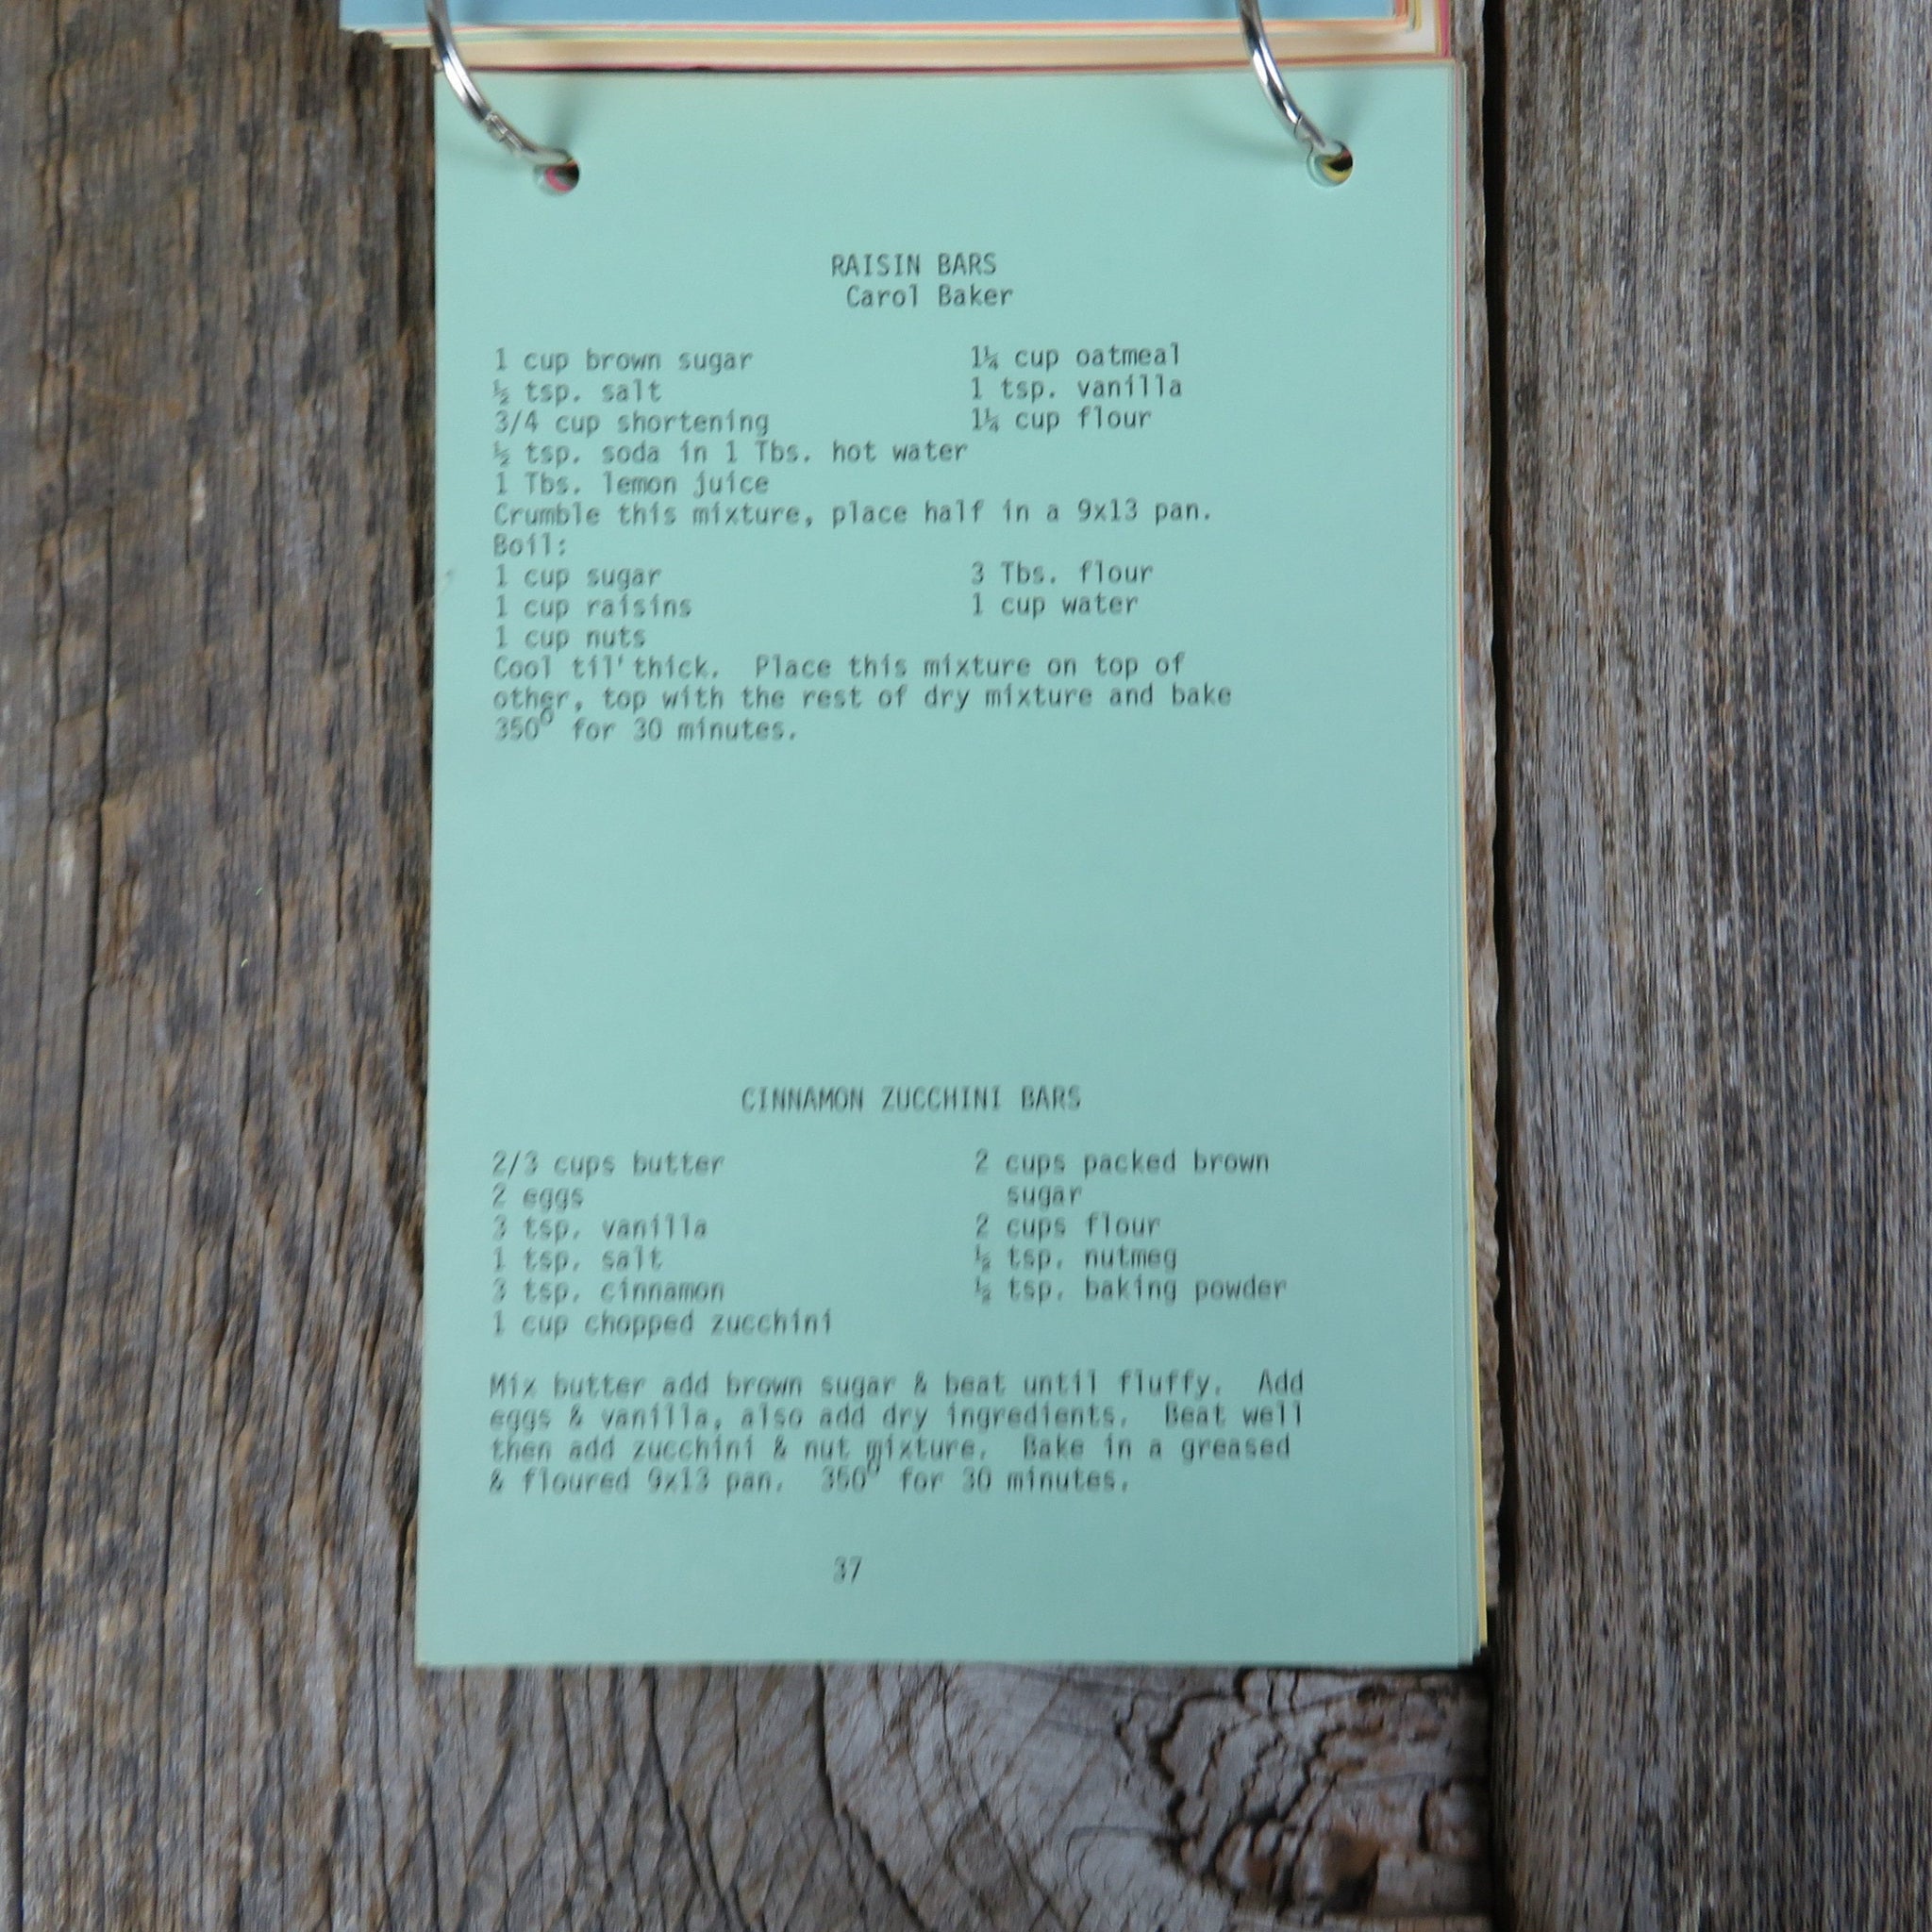 RAISIN BARS
Carol Baker
1 cup brown sugar 1¼ cup oatmeal
½ tsp. salt 1 tsp. vanilla
3/4 cup shortening 1¼ cup flour
½ tsp. soda in 1 Tbs. hot water
1 Tbs. lemon juice
Crumble this mixture, place half in a 9x13 pan.
Boil:
1 cup sugar 3 Tbs. flour
1 cup raisins 1 cup water
1 cup nuts
Cool til' thick. Place this mixture on top of
other, top with the rest of dry mixture and bake
350° for 30 minutes.
CINNAMON ZUCCHINI BARS
2/3 cups butter 2 cups packed brown
2 eggs sugar
3 tsp. vanilla 2 cups flour
1 tsp. salt ½ tsp. nutmeg
3 tsp. cinnamon ½ tsp. baking powder
1 cup chopped zucchini
Mix butter add brown sugar & beat until fluffy. Add
eggs & vanilla, also add dry ingredients. Beat well
then add zucchini & nut mixture. Bake in a greased
& floured 9x13 pan. 350° for 30 minutes.
37